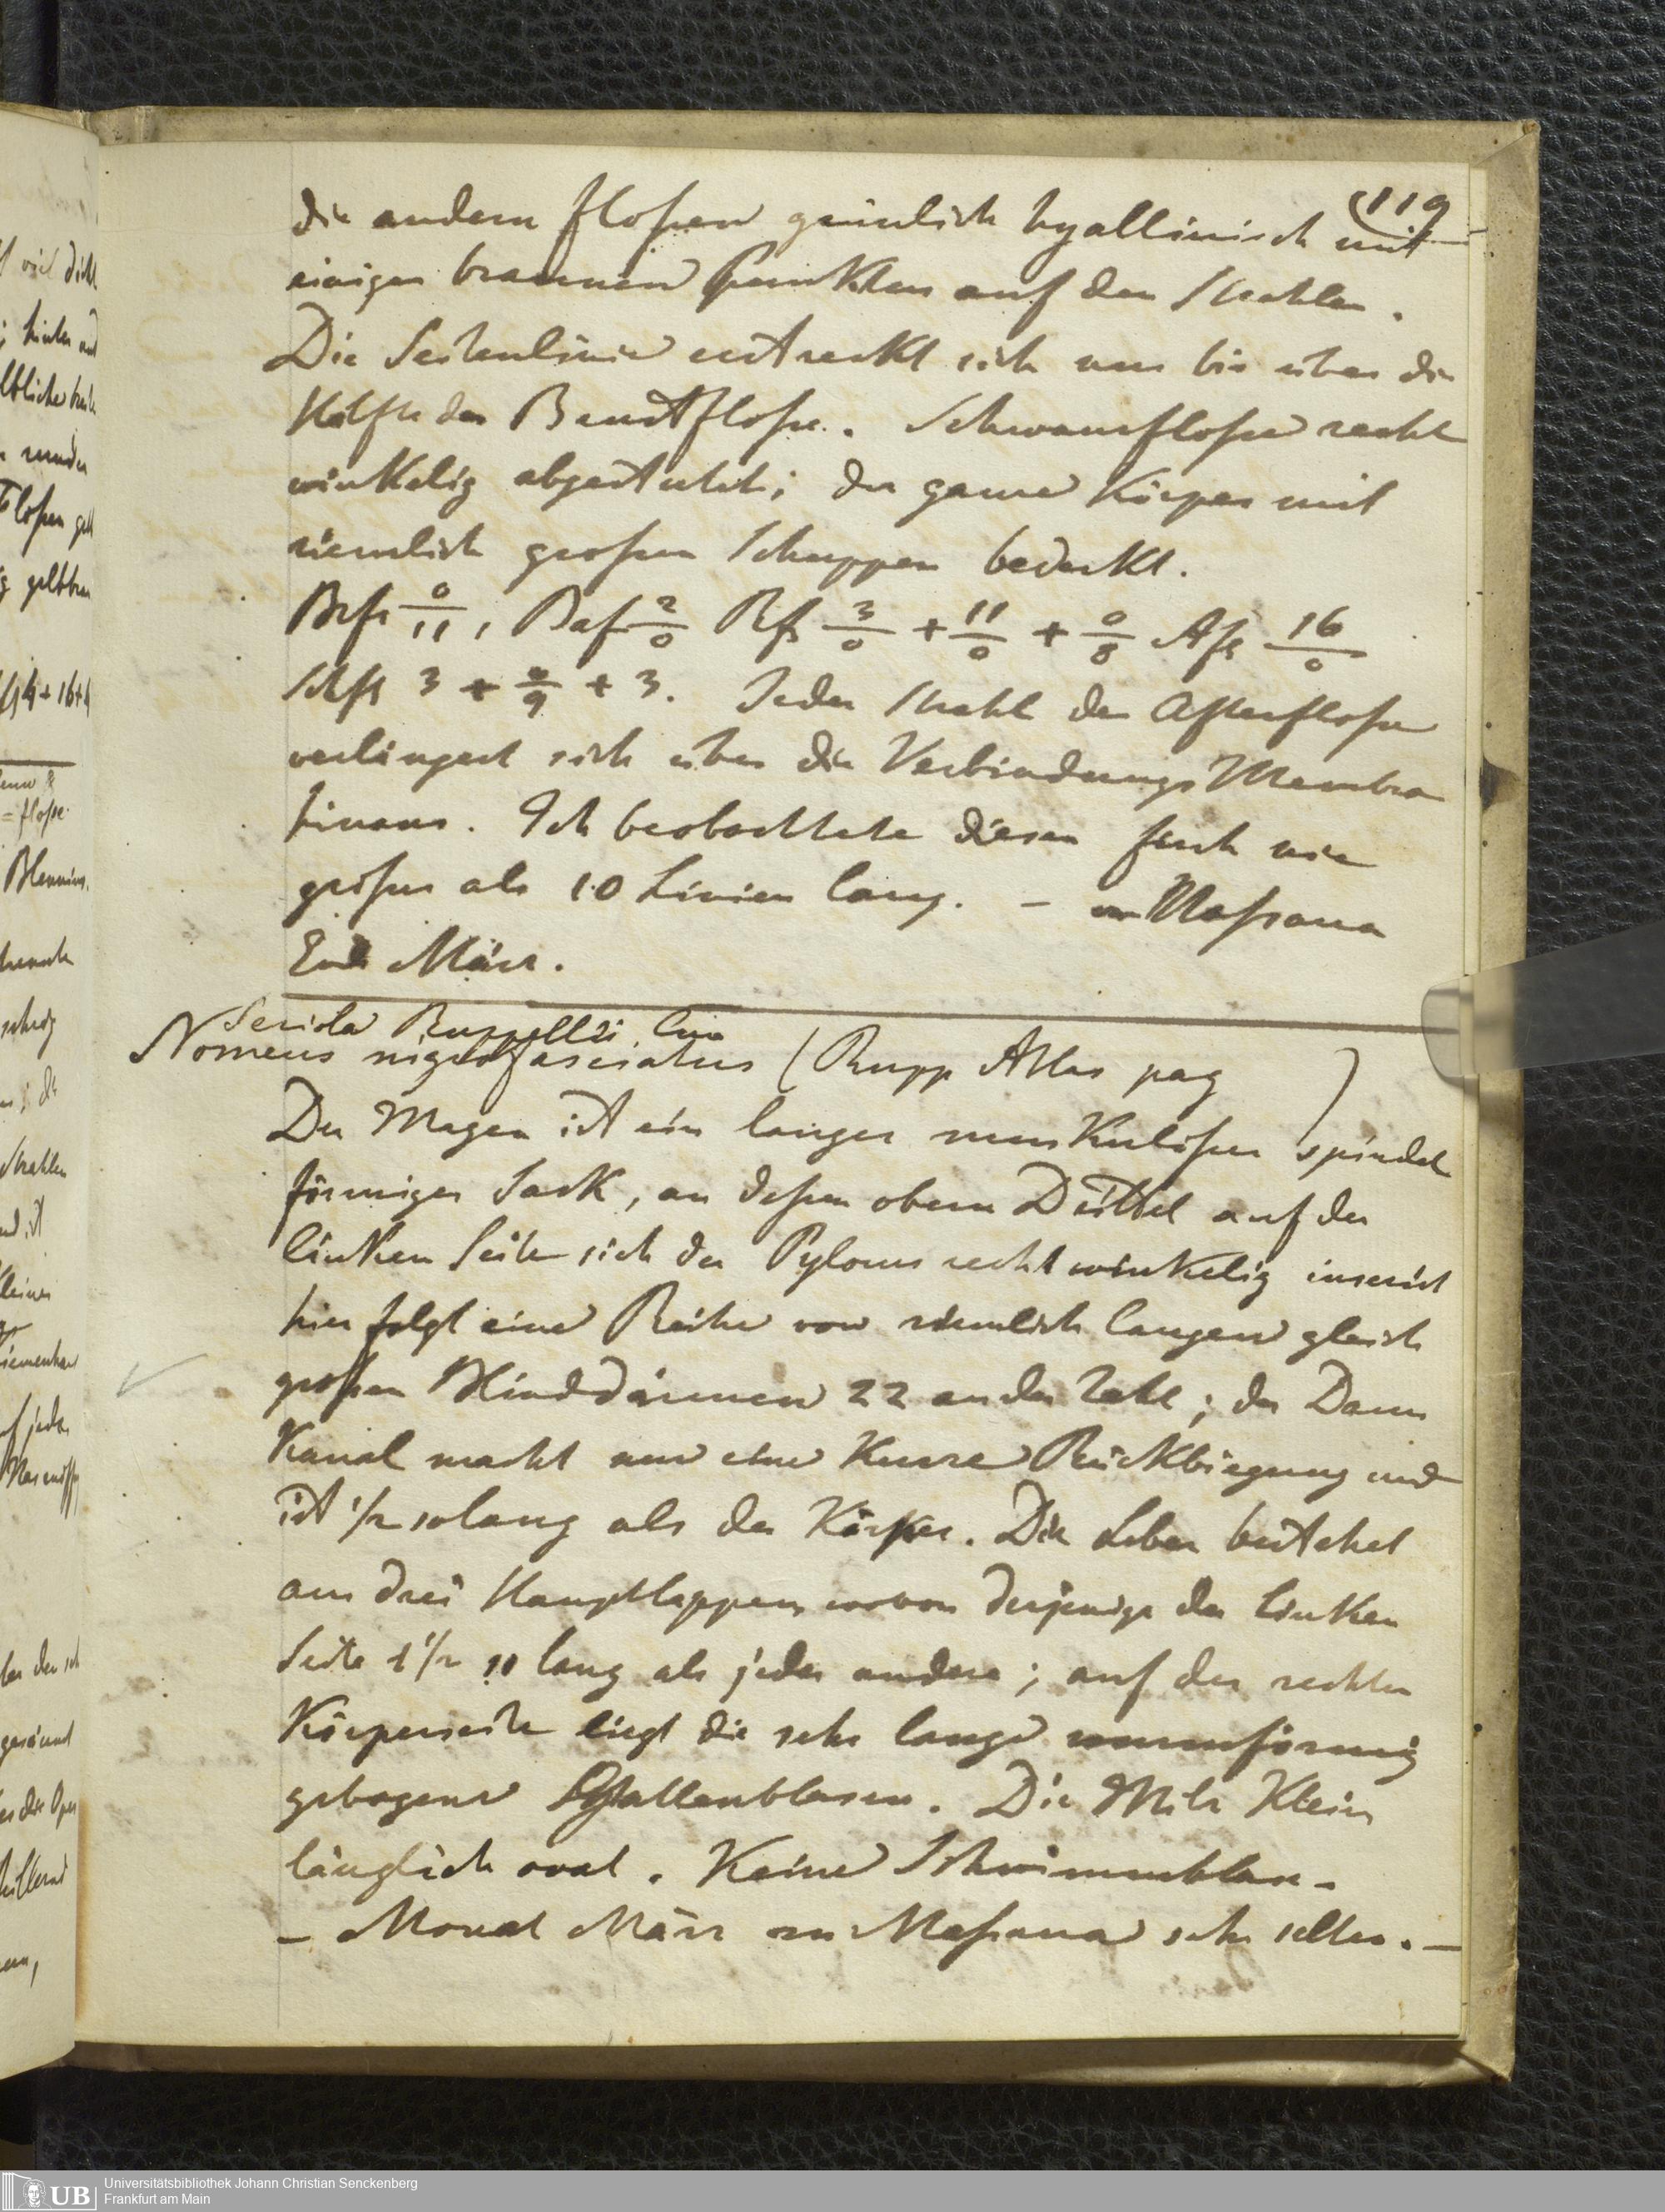 119
die andern Floßen grünlich hyallinisch mit
einigen braunen Punkten auf den Strahlen.
Die Seitenlinie erstreckt sich nur bis über die
Hälfte der Brustfloße. Schwanzfloße recht
winkelig abgestutzt; der ganze Körper mit
ziemlich großen Schuppen bedeckt.
Brfs 0/11, Baf 2/0 Rfs 3/0 + 11/0 + 0/8 Afs 16/0
Schfs 3 + 0/9 + 3. Jeder Strahl der Afterfloße
verlängert sich über die Verbindungs Membran
hinaus. Ich beobachtete diesen Fisch nie
großer als 10 Linien lang. – Maßaua
Ende März.
Seriola Ruppellii Cuv
Nomeus nigrofasciatus (Rupp Atlas pag )
Der Magen ist ein langer muskuloser spindel
förmiger Sack, an deßen obern Drittel auf der
linken Seite sich der Pylorus rechtwinkelig inserirt
hier folgt eine Reihe von ziemlich langen gleich
großen Blinddärmen 22 an der Zahl; der Darm
Kanal macht nur eine kurze Rückbiegung und
ist 1/2 solang als der Körper. Die Leber bestehet
aus drei Hauptlappen wovon derjenige der linken
Seite 1 1/2 so lang als jeder andere; auf der rechten
Körperseite liegt die sehr lange wurmförmig
gebogene Gallenblasen. Die Milz klein
länglich oval. Keine Schwimmblase.
– Monat März zu Maßaua sehr selten. –
Universitätsbibliothek Johann Christian Senckenberg
Frankfurt am Main
UB